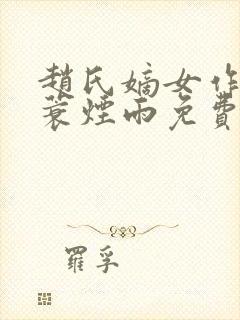 趙氏嫡女作
蓑煙雨免費
羅孚